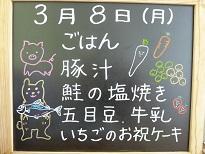 3月8日(月)
ごはん
豚汁
鮭の塩焼き
五目豆.牛乳
いちごのお祝ケーキ